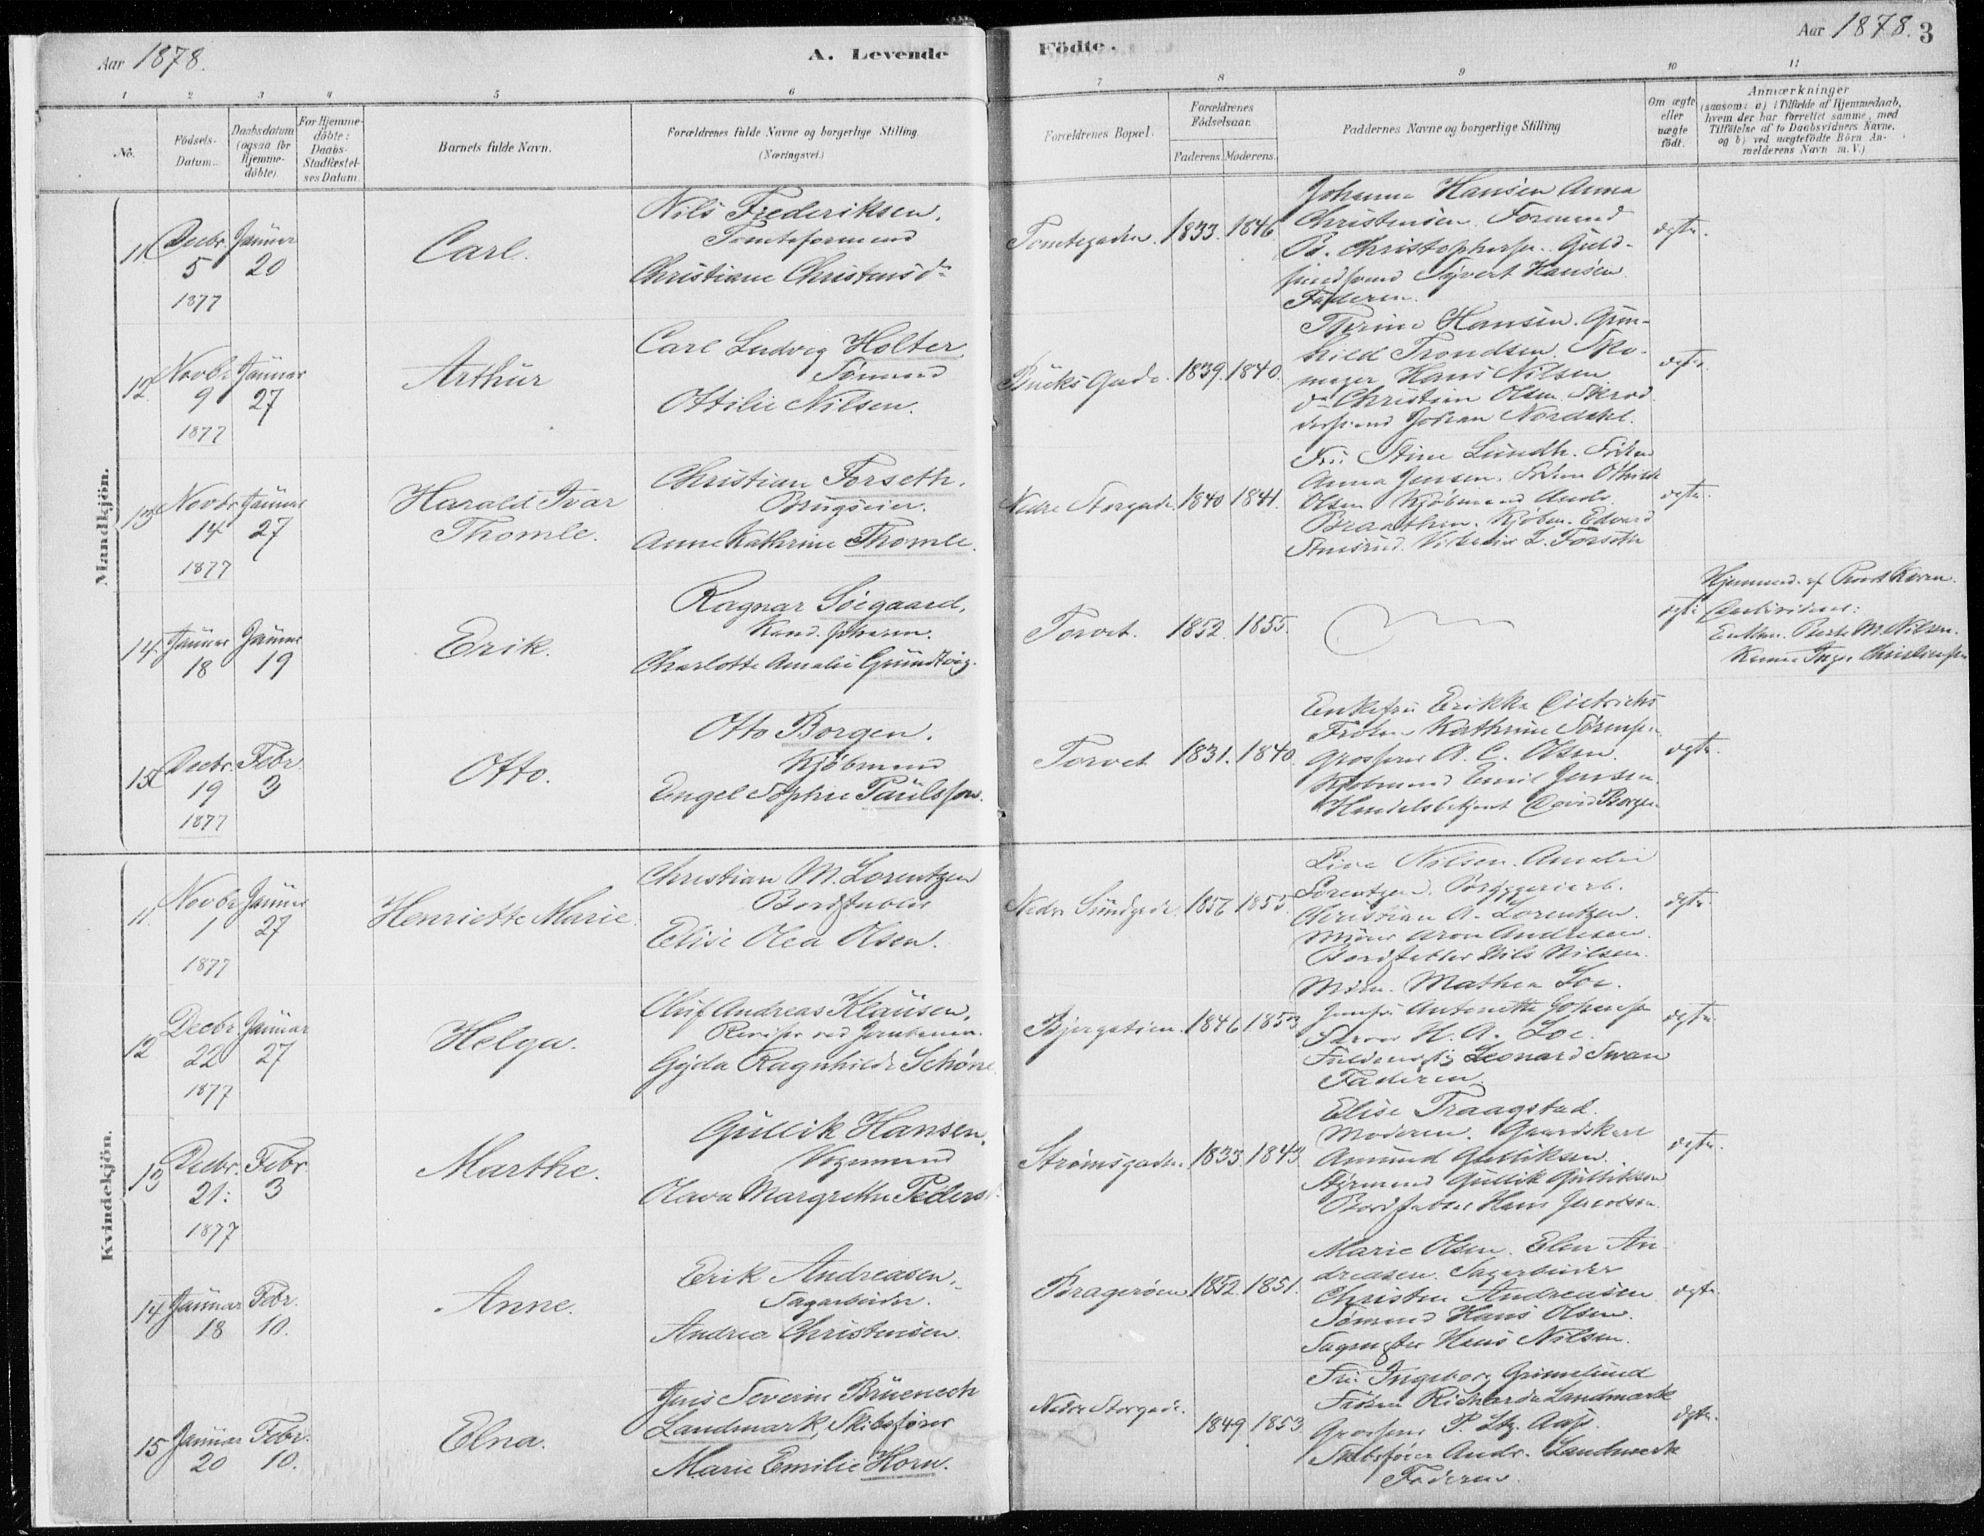 Aar 1878.
A. Levende
Födte.
Aar 1878. 3
1 2 3 4 5 6 7 8 9 10 11
No.
Födsels-
Datum.
Daabsdatum
(ogsaa for
Hjemme-
döbte).
For Hjemme-
döbte:
Daabs-
Stadfæstel-
ses Datum.
Barnets fulde Navn.
Forældrenes fulde Navne og borgerlige Stilling.
(Næringsvei.)
Forældrenes Bopæl.
Forældrenes
Födselsaar.
Faderens. Moderens.
Faddernes Navne og borgerlige Stilling
Om ægte
eller
uægte
födt.
Anmærkninger
(saasom: a) i Tilfælde af Hjemmedaab,
hvem der har forrettet samme, med
Tilföielse af to Daabsvidners Navne,
og b) ved uægtefödte Börn An-
melderens Navn m. V.)
Mandkjön.
11 Decbr. 5 1877
Januar 20
Carl.
Nils Frederiksen.
Tomteformand
Christiane Christensdr
Tomtegaden. 1833. 1846
Johanne Hansen Anna
Christensen. Formand
P. Christophersen.
Syvert Hansen
Faderen.
ægte.
12 Novbr 9 1877
Januar 27
Arthur
Carl Ludvig Holter
Tømmand
Ottilie Nilsen.
Bücks Gade. 1839. 1840.
Thrine Hansen. Gun-
hild Trondsen. Sko-
mager Hans Nilsen
Christian Olsen.
Johan Nordahl.
ægte.
13 Novbr 14 1877
Januar 27
Harald Ivar
Thomle.
Christian Forseth.
Brugseier.
Anne Kathrine Thomle.
Nedre Storgade 1840 1841.
Fru Stine Lundh. Frøken
Anna Jensen. Frøken Othilde
Olsen Kjøbmand Ands.
Braathen. Kjøbm. Edvard
L. Forseth
ægte.
14. Januar 18
Januar 19
Erik.
Ragnar Søegaard,
Kand.
Charlotte Amalie Grundtvig.
Torvet. 1852. 1855.
ægte
Hjemmed. af Provst
Daabsvidner:
Enken Berte M. Nilsen.
Inger Christensen
15 Decbr. 19 1877
Febr 3
Otto.
Otto Borgen.
Kjøbmand
Engel Sophie Paulsson.
Torvet 1831. 1840.
Enkefru Erikka Dietrichs
Frøken Kathrine Sørensen
Grosserer A. C. Olsen.
Kjøbmand Emil Jensen.
Handelsbetjent David Borgen
ægte.
Kvindekjön.
11. Novbr 1 1877
Januar 27
Henriette Marie
Christian M. Lorentzen
Bordstabler
Elise Olea Olsen.
Nedre Sundgade. 1856 1855.
Line Nilsen. Amalie
Lorentzen. Bryggeriarb.
Christian A. Lorentzen.
Aron Andresen.
Bordstabler Nils Nilsen.
ægte.
12 Decbr 22 1877
Januar 27
Helga.
Oluf Andreas Klausen,
Revisor ved Jernbanen.
Gyda Ragnhilde Schøne
Bjergstien. 1846 1853
Mathea Loe.
Jomfru Antonette Johansen
H. A. Loe.
Fuldmægtig Leonard Swan
Faderen.
ægte
13 Decbr. 21. 1877
Febr 3
Marthe.
Gullik Hansen,
Vognmand
Olava Margrethe Peders
Strømsgaden. 1833. 1843
Elise Traagstad.
Moderen. Gaardskarl
Amund Gulliksen.
Styrmand Gullik Gulliksen
Bordstabler Hans Jacobsen
ægte.
14 Januar 18
Febr. 10.
Anne.
Erik Andreasen.
Sagarbeider.
Andrea Christensen.
Bragerøen 1852. 1851.
Marie Olsen. Elen An-
dreasen. Sagarbeider
Christen Andreasen
Tømmand Hans Olsen.
Sagmester Hans Nilsen.
ægte.
15 Januar 20
Febr. 10.
Elna.
Jens Severin Bruenech
Landmark, Skibsfører
Marie Emilie Horn.
Nedre Storgade. 1849 1853
Fru Ingeborg Grønnelund
Frøken Richarda Landmark
Grosserer P. Ltz. Aass.
Skibsfører Andr. Landmark
Faderen.
ægte.